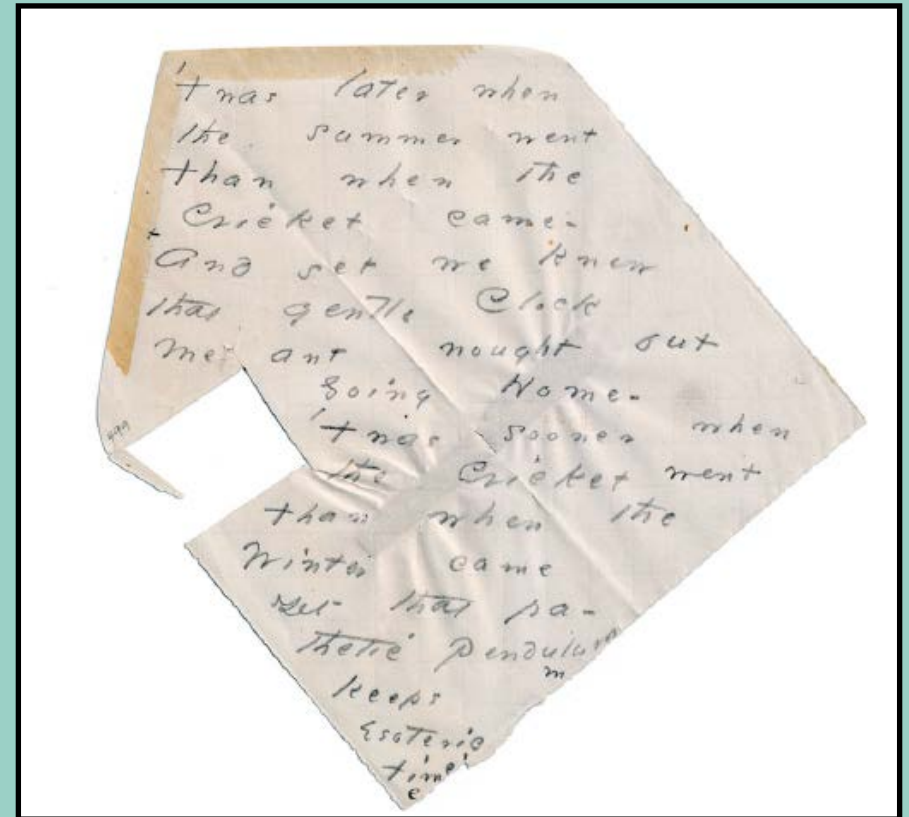 'Twas later when
the summer went
than when the
Cricket came -
And yet we knew
that gentle Clock
meant nought but
Going Home -
'Twas sooner when
the Cricket went
than when the
Winter came
Yet that pa-
thetic Pendulum
m
keeps
Esoteric
time
e